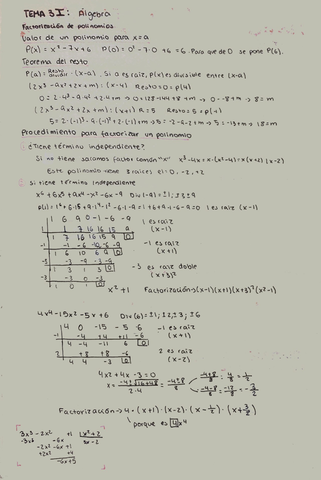 TEMA 3I: Álgebra
Factorización de polinomios
Valor de un polinomio para x=a
P(x) = x³-7x+6 P(0) = 0³-7·0+6=6. Para que de 0 se pone P(6).
Teorema del resto
P(a) = Resto dividir · (x-a). Si a es raíz, P(x) es divisible entre (x-a)
(2x³-9x²+2x+m) : (x-4) Resto=0=P(4)
0=2·4³-9·4²+2·4+m → 0=128-144+8+m → 0=-8+m → 8=m
(2x³-9x²+2x+m) : (x+1) R=5 Resto=5=P(-1)
5=2·(-1)³-9·(-1)²+2·(-1)+m → 5=-2-9-2+m → 5=-13+m → 18=m
Procedimiento para factorizar un polinomio
¿Tiene término independiente?
Si no tiene sacamos factor común "x" x³-4x=x·(x²-4)=x(x+2)(x-2)
Este polinomio tiene 3 raíces el 0, -2, +2
Si tiene término independiente
1 es raíz (x-1)
1 6 9 0 -1 -6 -9
1 1 7 16 16 15 9
1 7 16 16 15 9 0
1 es raíz
(x-1)
-1 -1 -6 -10 -6 -9
1 6 10 6 9 0
-1 es raíz
(x+1)
-3 -3 -9 -3 -9
1 3 1 3 0
-3 es raíz doble
(x+3)²
-3 -3 0 -3
1 0 1 0
x²+1 Factorización→(x-1)(x+1)(x+3)²(x²-1)
4x⁴-15x²-5x+6 Div(6)=±1; ±2; ±3; ±6
4 0 -15 -5 6
-1 -4 +4 +11 -6
4 -4 -11 6 0
-1 es raíz
(x+1)
2 +8 +8 -6
4 4 -3 0
2 es raíz
(x-2)
4x²+4x-3=0
x = -4±√16+48 / 2·4 = -4±8 / 8
-4+8 / 8 = 4/8 = 1/2
-4-8 / 8 = -12/8 = -3/2
Factorización → 4·(x+1)·(x-2)·(x-1/2)·(x+3/2)
porque es 4x⁴
3x³-2x² +1 x²+2
-3x³ -6x 3x-2
-2x²-6x+1
+2x² +4
-6x+5